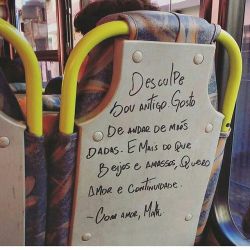 Desculpe
Sou antigo. Gosto
De andar de mãos
dadas. E mais do que
Beijos e amassos, Quero
Amor e Continuidade.
~ Com amor, Matt.